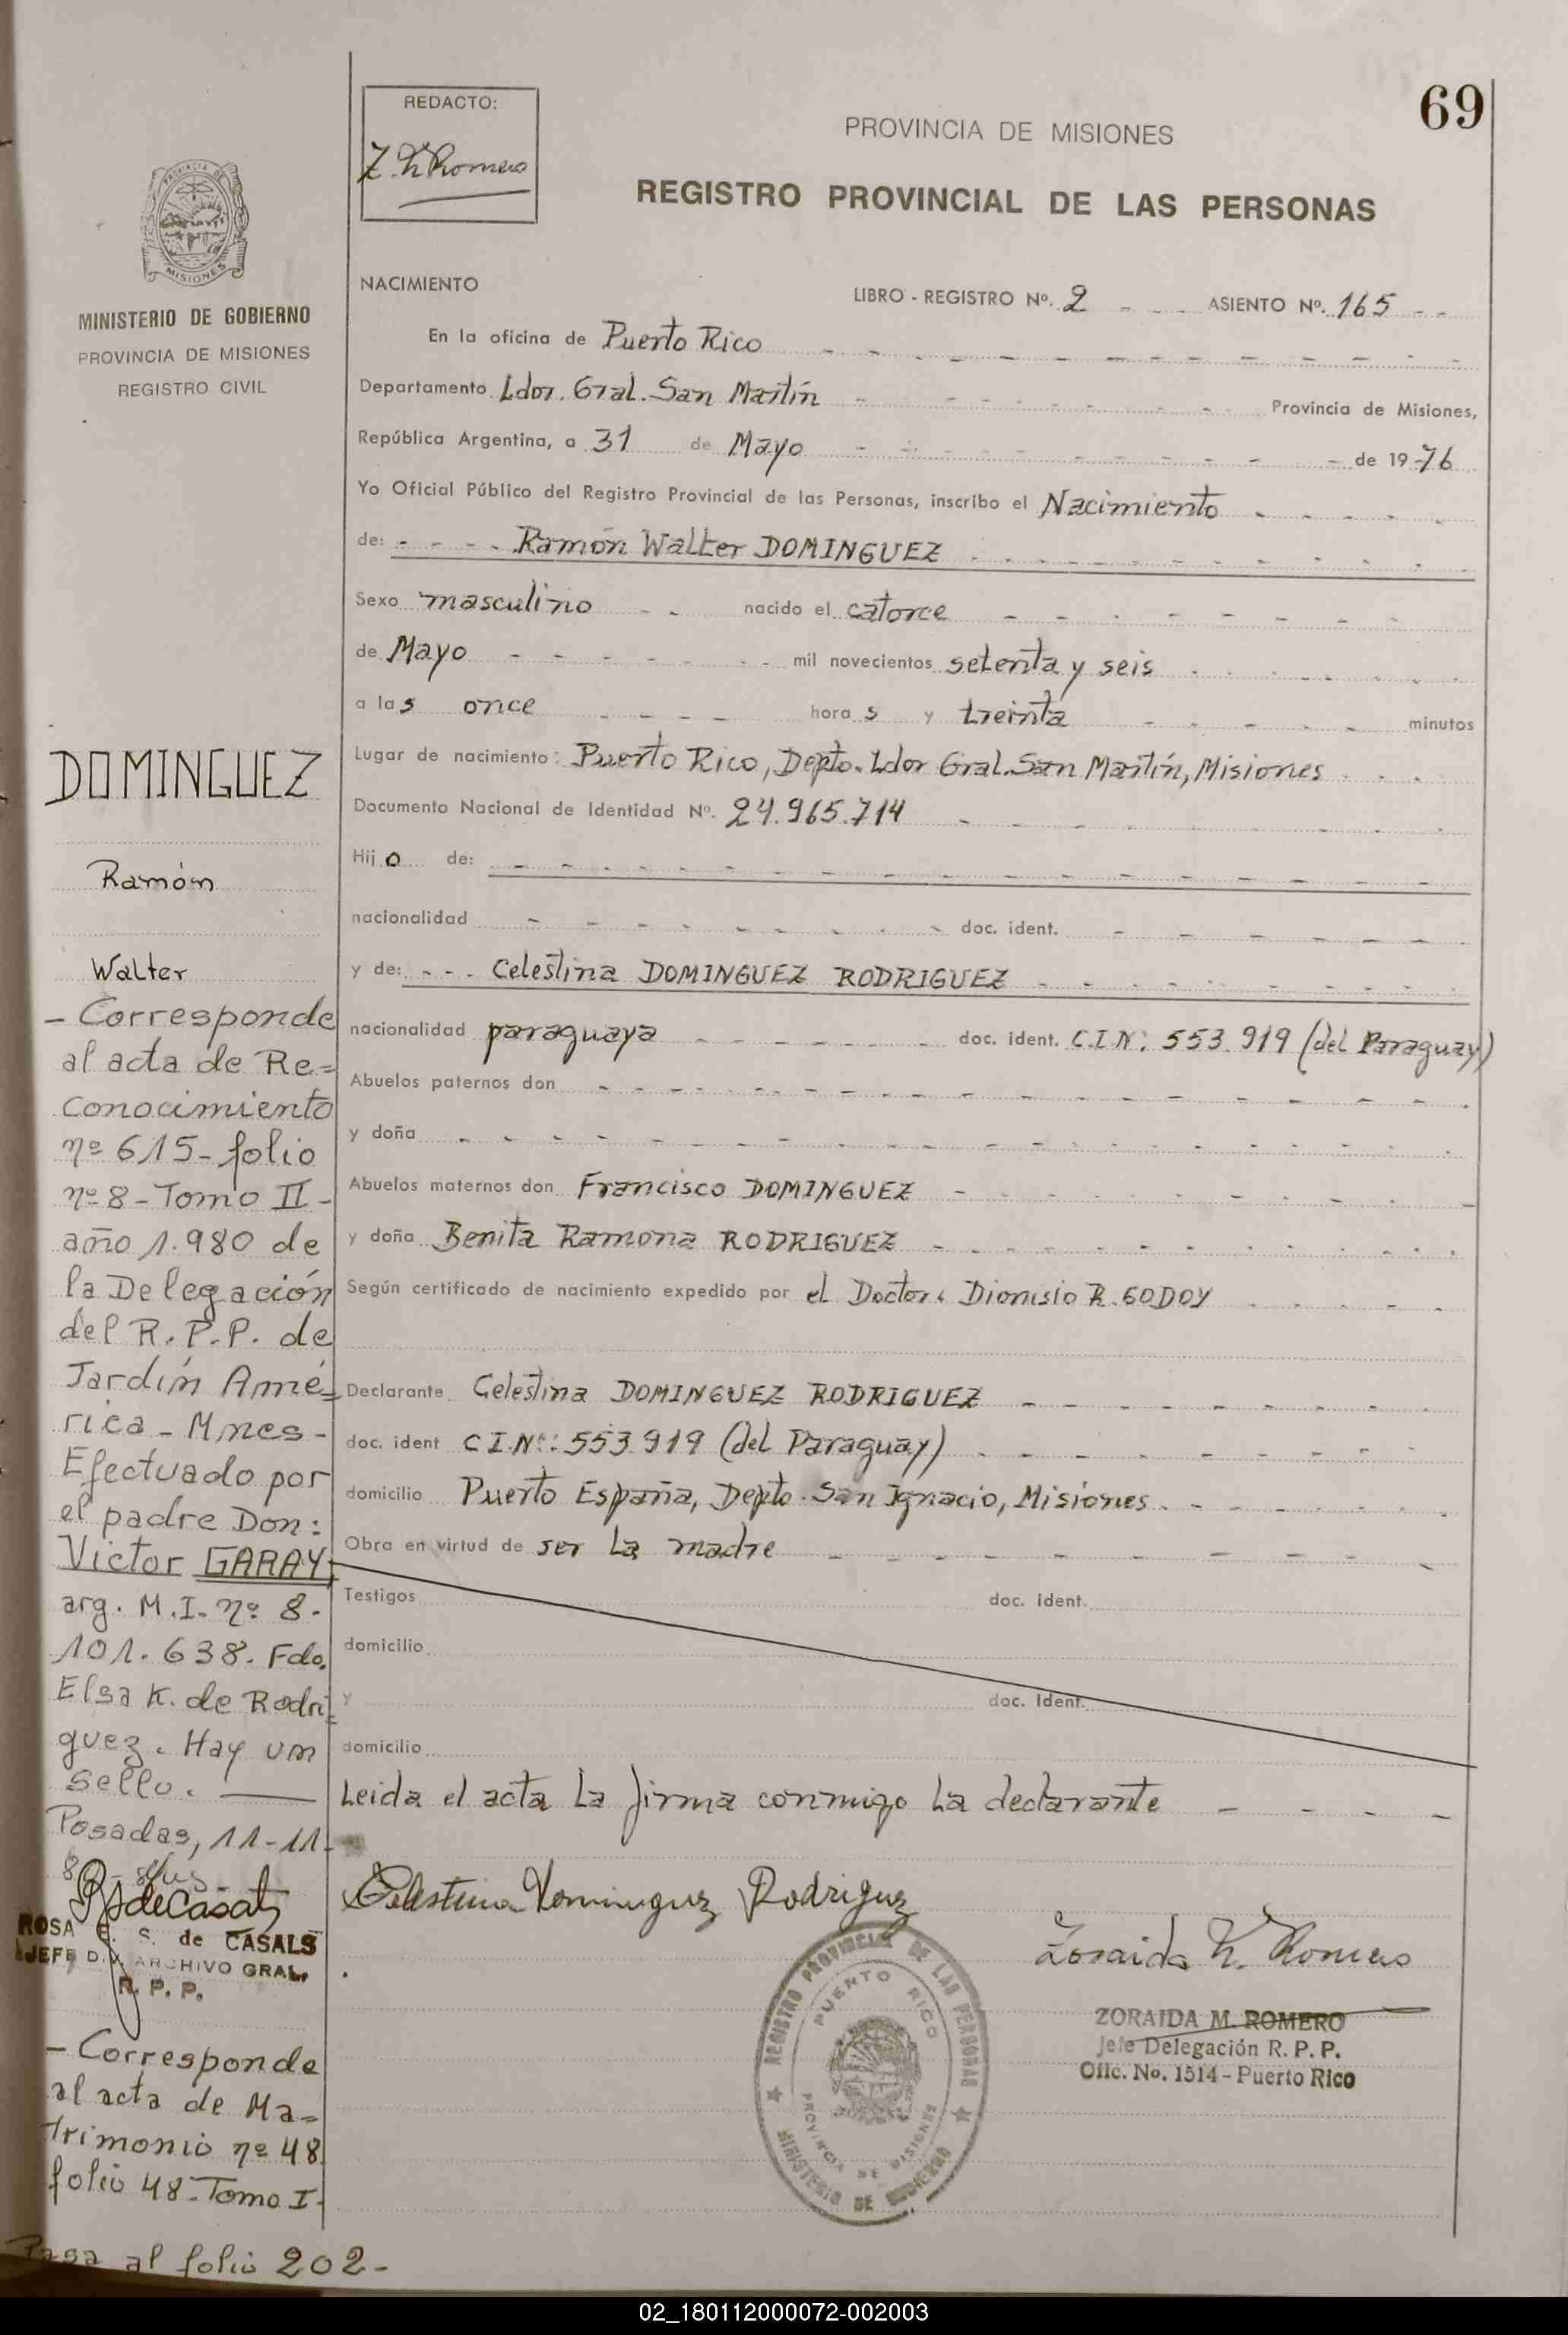 69
REDACTO:
Z. M. Romero
PROVINCIA DE MISIONES
REGISTRO PROVINCIAL DE LAS PERSONAS
PROVINCIA DE
MISIONES
MINISTERIO DE GOBIERNO
PROVINCIA DE MISIONES
REGISTRO CIVIL
NACIMIENTO
LIBRO - REGISTRO Nº. 2 - - - ASIENTO Nº. 165 - -
En la oficina de Puerto Rico
Departamento Ldor. Gral. San Martín Provincia de Misiones,
República Argentina, a 31 de Mayo de 19 76
Yo Oficial Público del Registro Provincial de las Personas, inscribo el Nacimiento
de: - - - - Ramón Walter DOMINGUEZ
Sexo masculino - - nacido el catorce
de Mayo mil novecientos setenta y seis
a las once hora s y treinta minutos
Lugar de nacimiento: Puerto Rico, Depto. Ldor Gral. San Martín, Misiones
Documento Nacional de Identidad Nº. 24.965.714
Hijo de:
nacionalidad doc. ident.
y de: - - - Celestina DOMINGUEZ RODRIGUEZ
nacionalidad paraguaya doc. ident. C.I.Nº: 553.919 (del Paraguay)
Abuelos paternos don
y doña
Abuelos maternos don Francisco DOMINGUEZ
y doña Benita Ramona RODRIGUEZ
Según certificado de nacimiento expedido por el Doctor: Dionisio R. GODOY
Declarante Celestina DOMINGUEZ RODRIGUEZ
doc. ident C.I.Nº: 553.919 (del Paraguay)
domicilio Puerto España, Depto. San Ignacio, Misiones
Obra en virtud de ser la madre
Testigos doc. ident.
domicilio
y doc. Ident.
domicilio
Leida el acta la firma conmigo la declarante
Celestina Dominguez Rodriguez
Zoraida M. Romero
ZORAIDA M. ROMERO
Jefe Delegación R. P. P.
Ofic. No. 1514 - Puerto Rico
REGISTRO PROVINCIAL DE LAS PERSONAS
PUERTO RICO
PROVINCIA DE MISIONES
MINISTERIO DE GOBIERNO
DOMINGUEZ
Ramón
Walter
- Corresponde
al acta de Re=
conocimiento
nº 615 - folio
nº 8 - Tomo II -
año 1.980 de
la Delegación
del R.P.P. de
Jardín Amé=
rica - Mnes -
Efectuado por
el padre Don:
Victor GARAY,
arg. M.I. nº 8.
101.638. Fdo.
Elsa K. de Rodri=
guez. Hay un
sello.
Posadas, 11-11-
RSdeCasals
ROSA E. S. de CASALS
JEFE DIV. ARCHIVO GRAL.
R. P. P.
- Corresponde
al acta de Ma=
trimonio nº 48
folio 48 - Tomo I -
Pasa al folio 202 -
02_180112000072-002003